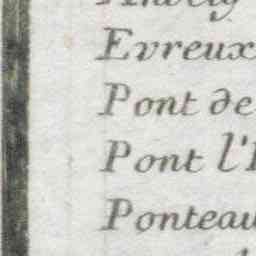 Evreux
Pont de
Pont l'
Ponteau